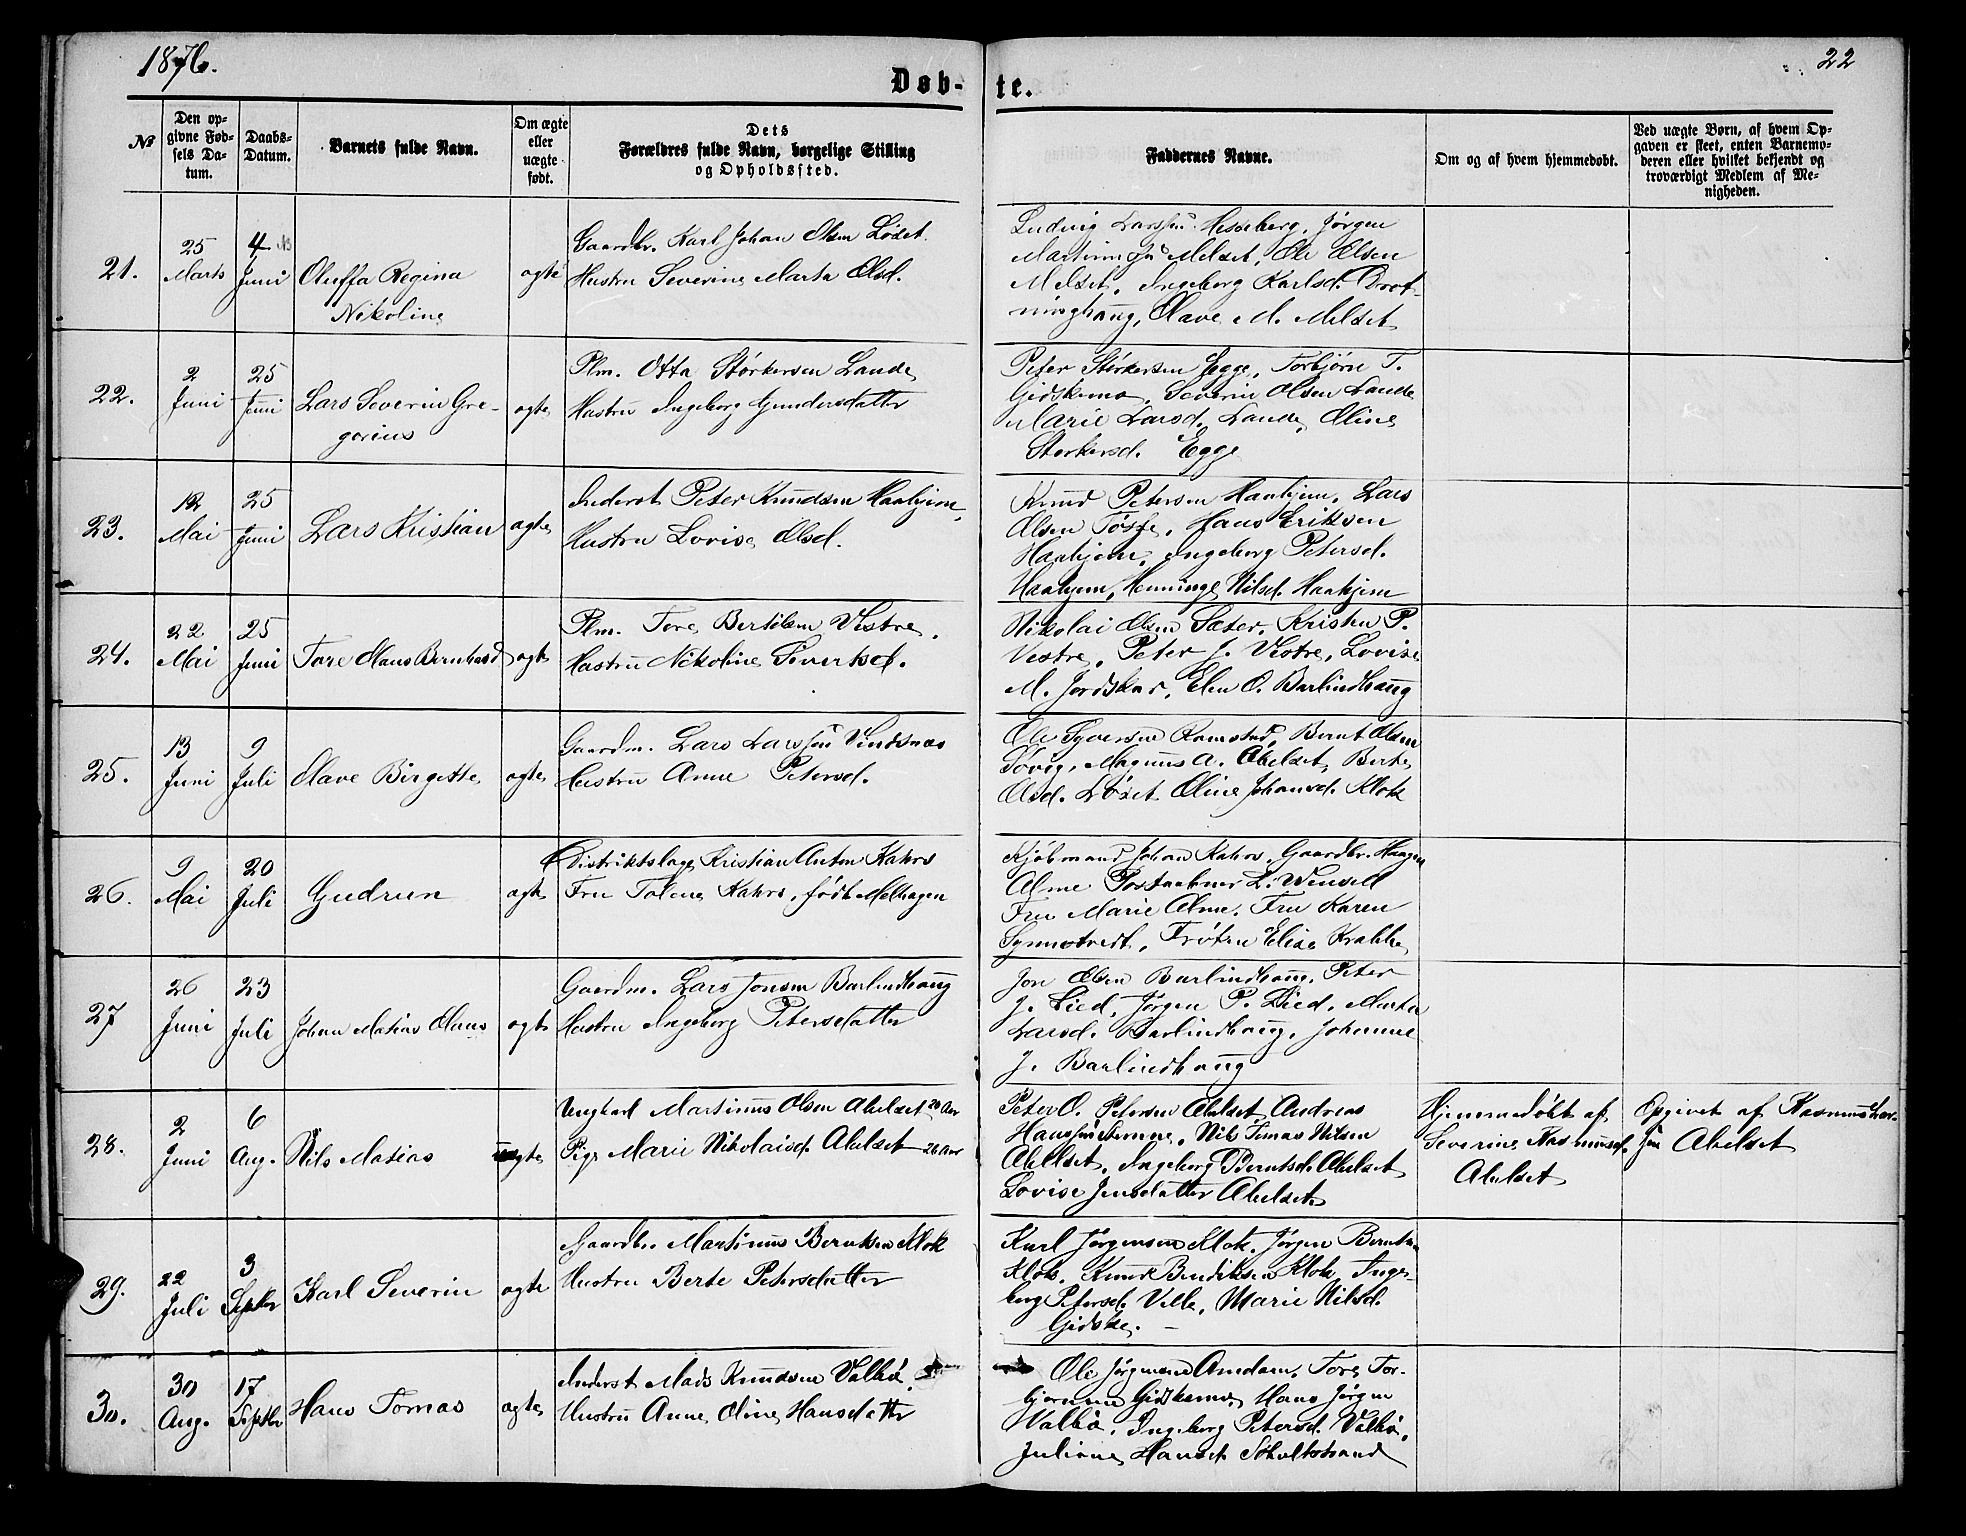 1876.
22
Døb-
te.
№
Den op-
givne Fød-
sels Da-
tum.
Daabs-
Datum.
Barnets fulde Navn.
Om ægte
eller
uægte
født.
Dets
Forældres fulde Navn, borgelige Stilling
og Opholdssted.
Faddernes Navne.
Om og af hvem hjemmedøbt.
Ved uægte Børn, af hvem Op-
gaven er skeet, enten Barnemo-
deren eller hvilket bekjendt og
troværdigt Medlem af Me-
nigheden.
21.
25
Marts
4
Juni
Oluffa Regina
Nikoline
ægte
Gaardbr. Karl Johan Olsen Løset
Hustru Severine Marta Olsd.
Ludvig Larssen Hesseberg, Jørgen
Melset, Ole Olsen
Melset, Ingeborg Karlsd. Drot-
ninghaug, Olave M. Melset
22.
2
Juni
25
Juni
Lars Severin Gre-
gorius
ægte
Plm. Otta Størkersen Lande
Hustru Ingeborg Gundersdatter
Peter Størkersen Egge, Torbjørn T.
Gidskemo, Severin Olsen Lande
Marie Larsd. Lande, Oline
Størkersd. Egge
23.
12
Mai
25
Juni
Lars Kristian
ægte
Inderst Peter Knudsen Haahjem,
Hustru Lovise Olsd.
Knud Petersen Haahjem, Lars
Olsen Tøsse, Hans Eriksen
Haahjem, Ingeborg Petersd.
Haahjem, Henninge Nilsd. Haahjem
24.
22
Mai
25
Juni
Tore Claus Bernhard
ægte
Plm. Tore Bertilsen Vestre,
Hustru Nikoline Sivertsd.
Nikolai Olsen Sæter, Kristen P.
Vestre, Peter J. Vestre, Lovise
M. Jordskar, Elen O. Barlindhaug
25.
13
Juni
9
Juli
Olave Birgitte
ægte
Gaardm. Lars Larssen Vindsnæs
Hustru Anne Petersd.
Ole Syversen Ramstad, Bernt Olsen
Søvig, Magnus A. Abelset, Berte
Olsd. Løset Oline Johansd. Klok
26.
9
Mai
20
Juli
Gudrun
ægte
Distriktslæge Kristian Anton Kahrs
Fru Toline Kahrs, født Melhagen
Kjøbmand Johan Kahrs, Gaardbr. Haagen
Alme Postaabner L. Wensell
Fru Marie Alme, Fru Karen
Synnestvedt, Frøken Elise Krabbe
27
26
Juni
23
Juli
Johan Matias Claus
ægte
Gaardm. Lars Jonsen Barlindhaug
Hustru Ingeborg Petersdatter
Jon Olsen Barlindhaug, Peter
J. Lied, Jørgen P. Lied, Marte
Larsd. Barlindhaug, Johanne
J. Barlindhaug
28.
2
Juni
6
Aug.
Nils Matias
uægte
Ungkarl Martinus Olsen Abelset
Pige Marie Nikolaisd. Abelset 26 Aar
Peter O. Petersen Abelset Andreas
Hanssen Stemme, Nils Tomas Nilsen
Abelset, Ingeborg Berntsd. Abelset
Lovise Jensdatter Abelset
Hjemmedøbt af
Severine Rasmusd.
Abelset
Opgivet af Rasmus
Abelset
29.
22
Juli
3
Septbr
Karl Severin
ægte
Gaardbr. Martinus Berntsen Klok
Hustru Berte Petersdatter
Karl Jørgensen Klok, Jørgen Berntsen
Klok, Knut Bendiksen Klok, Inge-
borg Petersd. Velle, Marie Nilsd.
Gidske.
30.
30
Aug.
17
Septbr
Hans Tomas
ægte
Inderst Mads Knudsen Valbø,
Hustru Anne Oline Hansdatter
Ole Jørgensen Amdam, Tore Tor-
bjørnsen Gidskemo, Hans Jørgen
Valbø, Ingeborg Petersd. Valbø,
Juliane Hansd. Skoltestrand